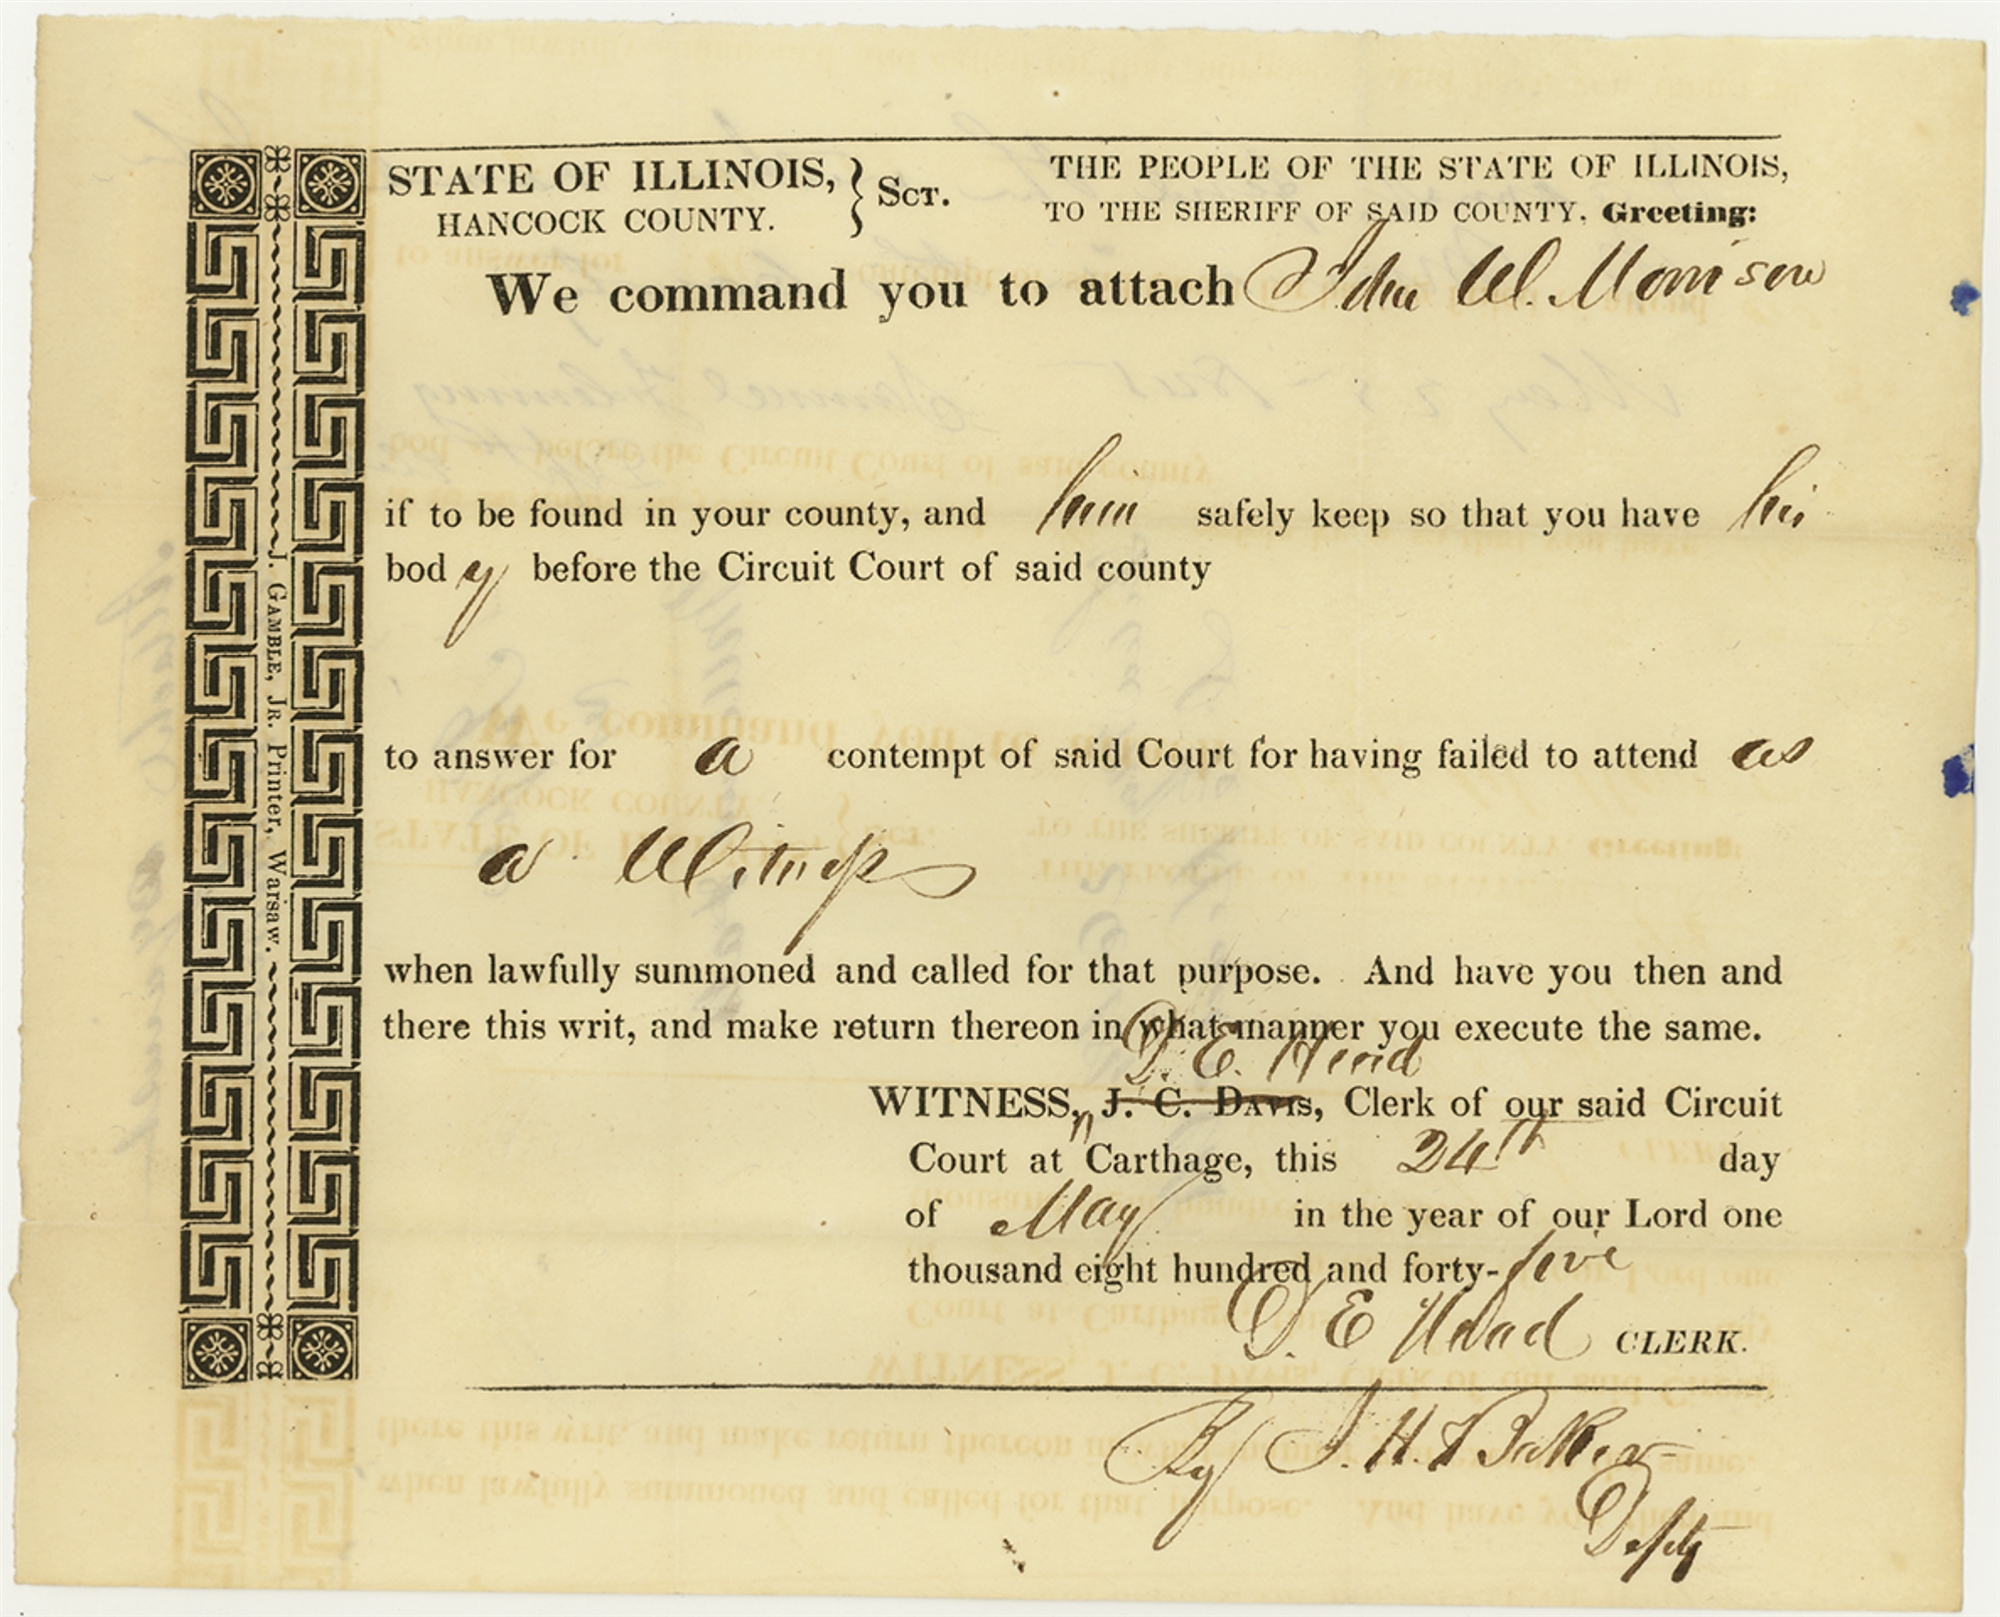 STATE OF ILLINOIS, } Sct.
HANCOCK COUNTY.
THE PEOPLE OF THE STATE OF ILLINOIS,
TO THE SHERIFF OF SAID COUNTY, Greeting:
We command you to attach John W. Morrison
if to be found in your county, and him safely keep so that you have his
body before the Circuit Court of said county
to answer for a contempt of said Court for having failed to attend as
a Witness
when lawfully summoned and called for that purpose. And have you then and
there this writ, and make return thereon in what manner you execute the same.
D. E. Head
WITNESS, J. C. Davis, Clerk of our said Circuit
Court at Carthage, this 24th day
of May in the year of our Lord one
thousand eight hundred and forty-five
D. E. Head CLERK.
By J. H. Baker
Depty
J. Gamble, Jr. Printer, Warsaw.